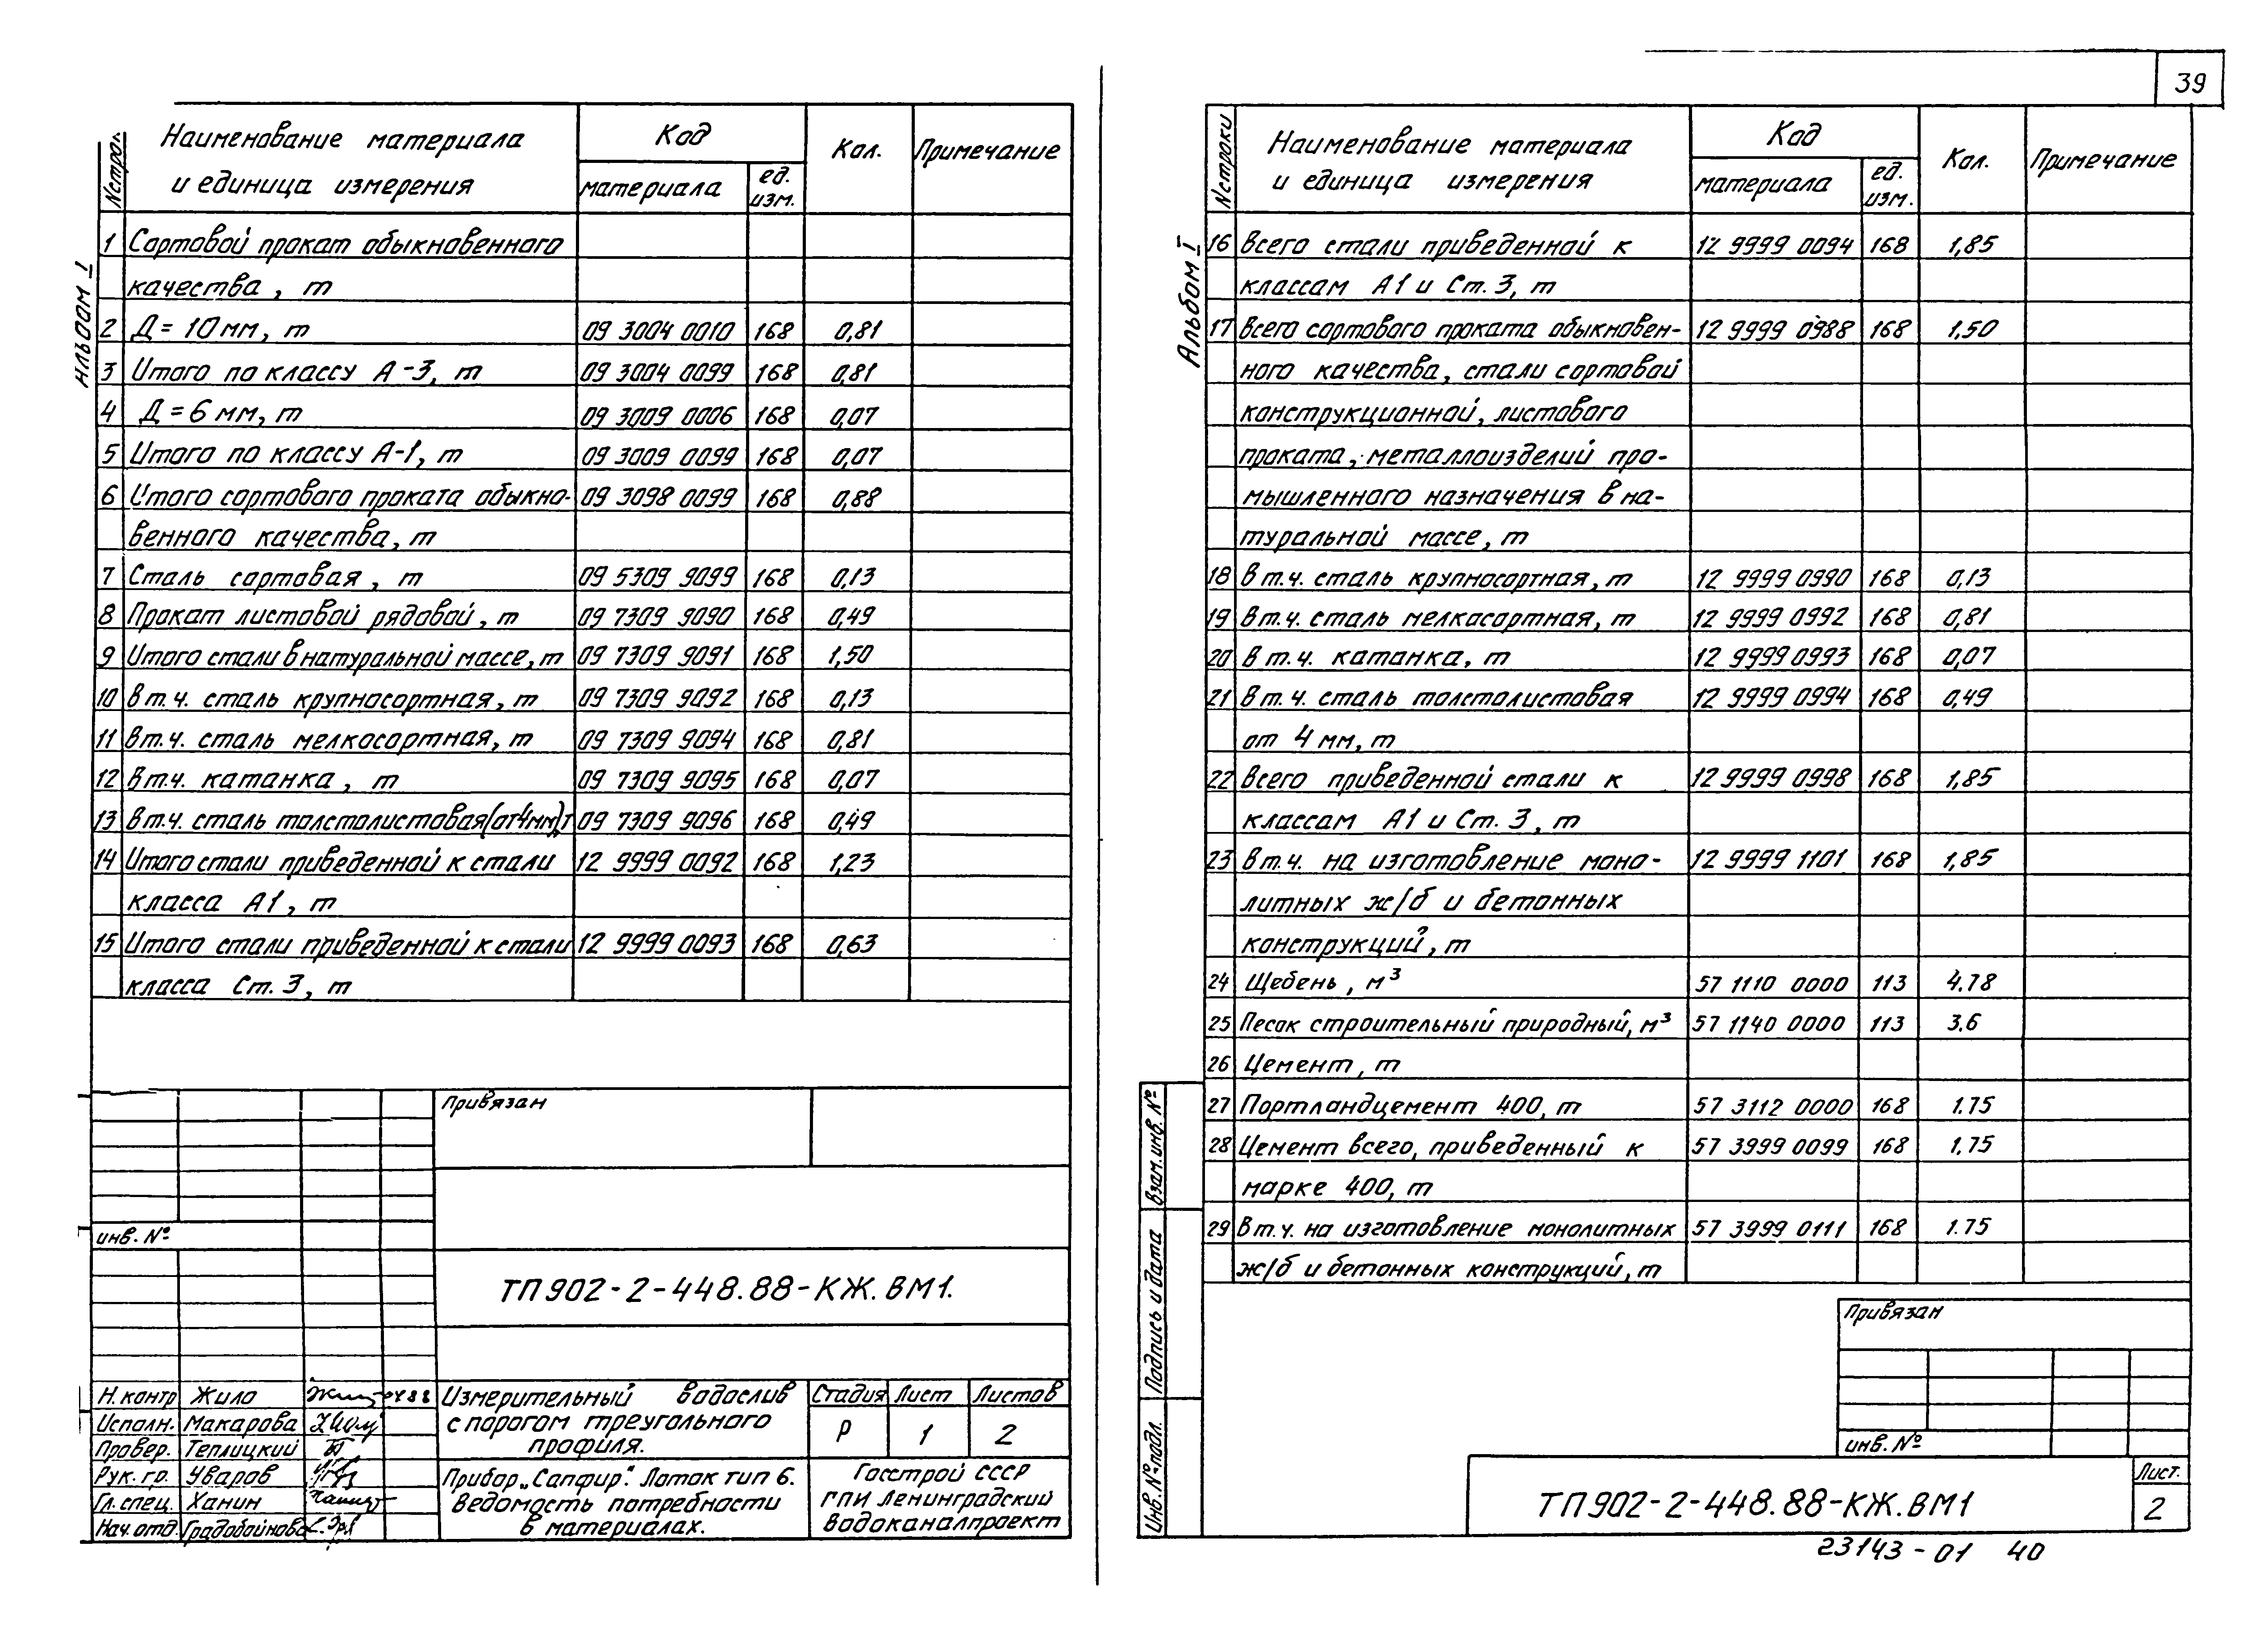 39
Альбом I
№ стро.
Наименование материала
и единица измерения
Код
материала
ед.
изм.
Кол.
Примечание
1 Сортовой прокат обыкновенного
качества, т
2 Д = 10 мм, т 09 3004 0010 168 0,81
3 Итого по классу А-3, т 09 3004 0099 168 0,81
4 Д = 6 мм, т 09 3009 0006 168 0,07
5 Итого по классу А-1, т 09 3009 0099 168 0,07
6 Итого сортового проката обыкно- 09 3098 0099 168 0,88
венного качества, т
7 Сталь сортовая, т 09 5309 9099 168 0,13
8 Прокат листовой рядовой, т 09 7309 9090 168 0,49
9 Итого стали в натуральной массе, т 09 7309 9091 168 1,50
10 в т.ч. сталь крупносортная, т 09 7309 9092 168 0,13
11 в т.ч. сталь мелкосортная, т 09 7309 9094 168 0,81
12 в т.ч. катанка, т 09 7309 9095 168 0,07
13 в т.ч. сталь толстолистовая (от 4 мм), т 09 7309 9096 168 0,49
14 Итого стали приведенной к стали 12 9999 0092 168 1,23
класса А1, т
15 Итого стали приведенной к стали 12 9999 0093 168 0,63
класса Ст. 3, т
Привязан
инв. №
ТП 902-2-448.88-КЖ.ВМ1.
Н.контр Жило 04 88
Исполн. Макарова
Провер. Теплицкий
Рук. гр. Уваров
Гл. спец. Ханин
Нач. отд Градобойнова
Измерительный водослив
с порогом треугольного
профиля.
Стадия Лист Листов
Р 1 2
Прибор „Сапфир". Лоток тип 6.
Ведомость потребности
в материалах.
Госстрой СССР
ГПИ Ленинградский
Водоканалпроект
Альбом I
№ строки
Наименование материала
и единица измерения
Код
материала
ед.
изм.
Кол.
Примечание
16 Всего стали приведенной к 12 9999 0094 168 1,85
классам А1 и Ст. 3, т
17 Всего сортового проката обыкновен- 12 9999 0988 168 1,50
ного качества, стали сортовой
конструкционной, листового
проката, металлоизделий про-
мышленного назначения в на-
туральной массе, т
18 в т.ч. сталь крупносортная, т 12 9999 0990 168 0,13
19 в т.ч. сталь мелкосортная, т 12 9999 0992 168 0,81
20 в т.ч. катанка, т 12 9999 0993 168 0,07
21 в т.ч. сталь толстолистовая 12 9999 0994 168 0,49
от 4 мм, т
22 Всего приведенной стали к 12 9999 0998 168 1,85
классам А1 и Ст. 3, т
23 в т.ч. на изготовление моно- 12 9999 1101 168 1,85
литных ж/б и бетонных
конструкций, т
24 Щебень, м³ 57 1110 0000 113 4.78
25 Песок строительный природный, м³ 57 1140 0000 113 3.6
26 Цемент, т
27 Портландцемент 400, т 57 3112 0000 168 1.75
28 Цемент всего, приведенный к 57 3999 0099 168 1.75
марке 400, т
29 В т.ч. на изготовление монолитных 57 3999 0111 168 1.75
ж/б и бетонных конструкций, т
Взам. инв. №
Подпись и дата
Инв. № подл.
Привязан
инв. №
ТП 902-2-448.88-КЖ.ВМ1
Лист.
2
23143-01 40